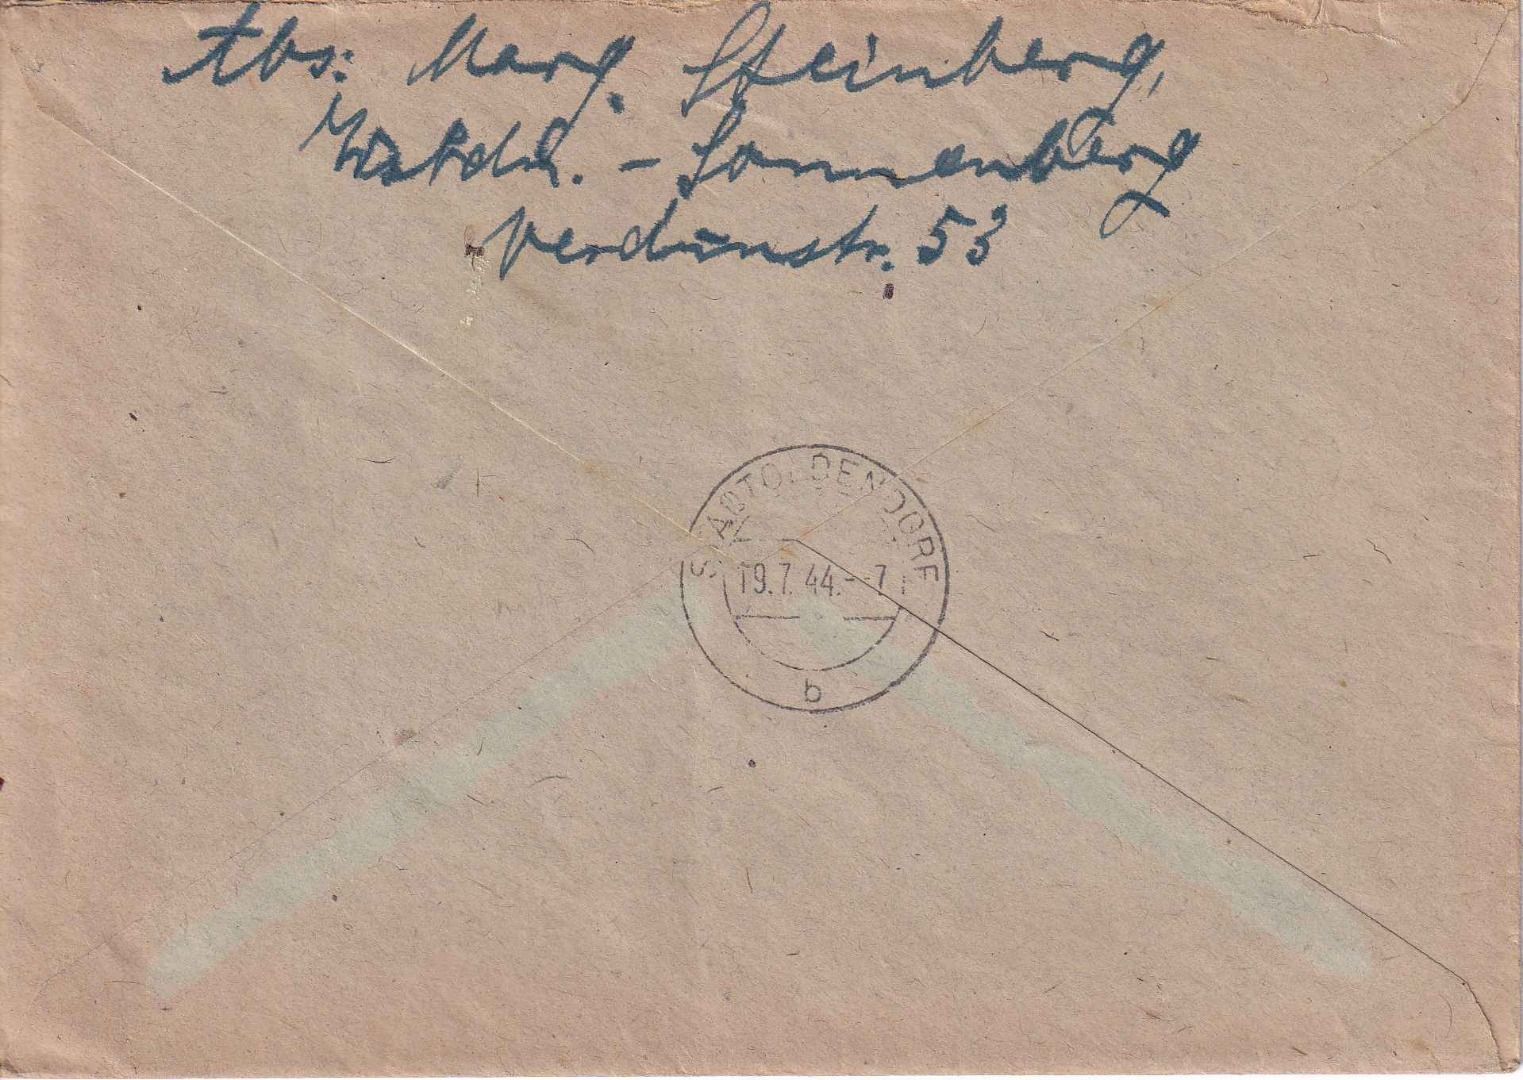 Abs: Marg. Steinberg,
Wiesbdn. - Sonnenberg
Verdunstr. 53
STADTOLDENDORF
19.7.44.-7
b